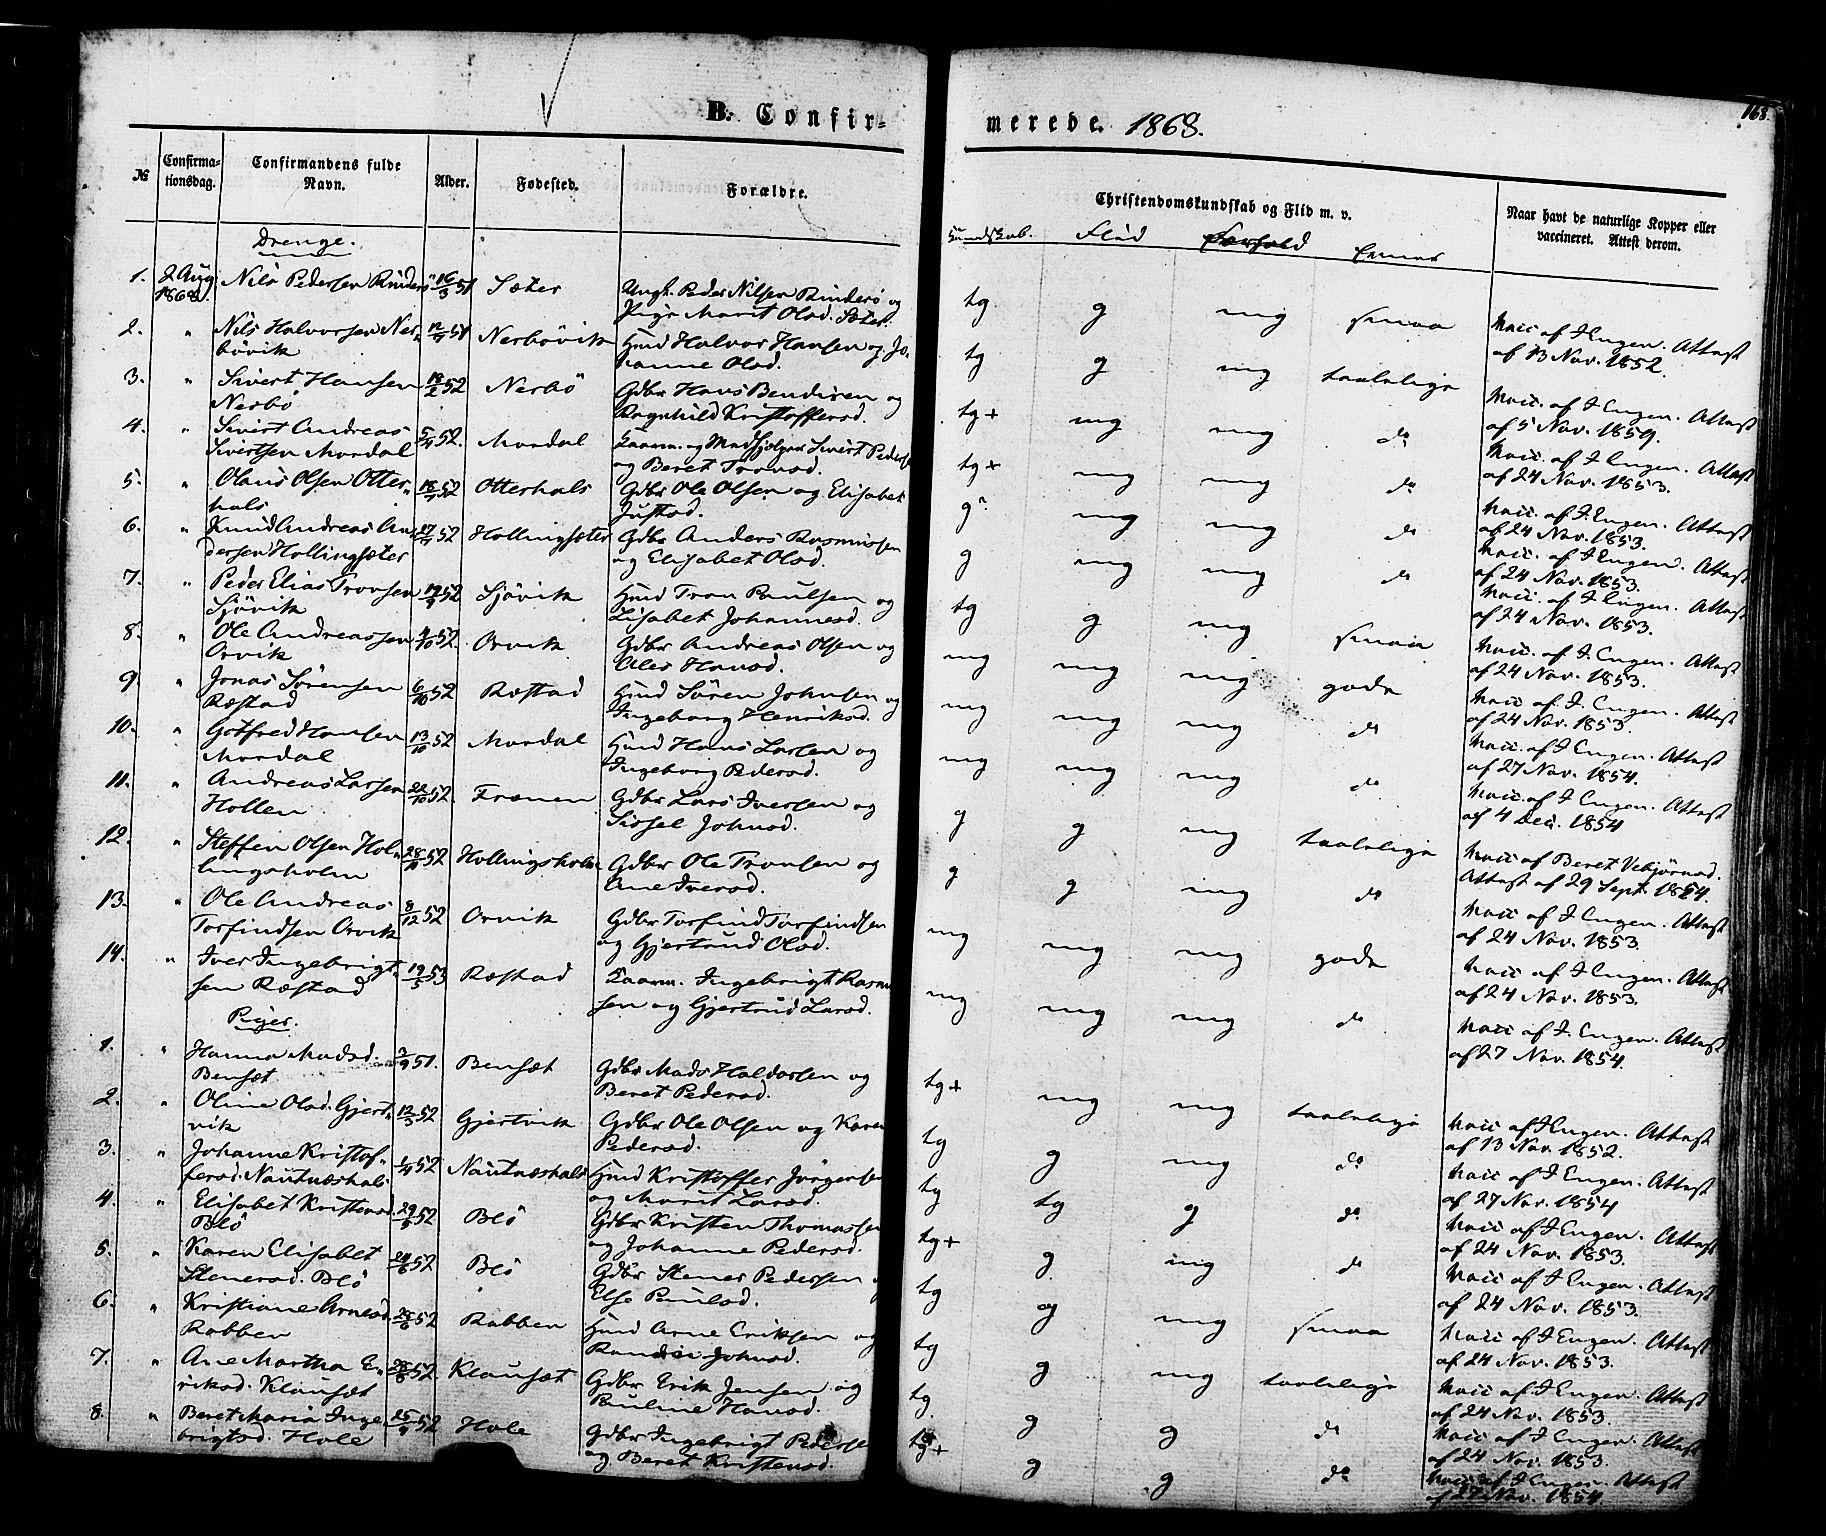 B. Confir-
merede. 1868.
168.
№
Confirma-
tionsdag.
Confirmandens fulde
Navn.
Alder.
Fødested.
Forældre.
Christendomskundskab og Flid m. v.
Naar havt de naturlige Kopper eller
vaccineret. Attest derom.
Kundskab. Flid Forhold Evner
Drenge.
1. 2 Aug 1868. Nils Pedersen 16/3 51 Sæter Ungk. Peder Nilsen og
Pige Marit Olsd. Sæter. tg g mg smaa Vacc af J Engen. Attest
af 13 Nov. 1852.
2. " Nils Halvorsen Ner- 51 Nerbövik Hmd Halvor Hansen og Jo-
bövik hanne Olsd. tg g mg taalelige Vacc. af J Engen. Attest
af 5 Nov. 1859.
3. " Sivert Hansen 52 Nerbö Gdbr Hans Bendixen og
Nerbö Ragnhild Kristoffersd. tg+ mg mg do Vacc. af J Engen. Attest
af 24 Nov. 1853.
4. " Sivert Andreas 5/4 52. Mordal Sivert Peders
Sivertsen Mordal og Beret Tronsd. tg+ mg mg do Vacc. af J. Engen. Attest
af 24 Nov. 1853.
5. " Olaus Olsen Otter- 52 Otterhals Gdbr Ole Olsen og Elisabet
hals Justsd. g mg mg do Vacc. af J. Engen. Attest
af 24 Nov. 1853.
6. " Knud Andreas An- 52 Hollingsæter Gdbr Anders Rasmussen
dersen Hollingsæter og Elisabet Olsd. g mg mg do Vacc. af J Engen. Attest
af 24 Nov. 1853.
7. " Peder Elias Tronsen 52 Sjövik Hmd Tron Paulsen og
Sjövik Lisabet Johannesd. tg g mg smaa Vacc. af J. Engen. Attest
af 24 Nov. 1853.
8. " Ole Andreassen 4/10 52. Orvik Gdbr Andreas Olsen og
Orvik Hansd. mg mg mg gode Vacc. af J. Engen. Attest
af 24 Nov. 1853.
9. " Jonas Sörensen 6/10 52 Ræstad Hmd Sören Johnsen og
Ræstad Ingeborg Henriksd. mg mg mg do Vacc. af J Engen. Attest
af 27 Nov. 1854.
10. " Gotfred Hansen 13/10 52 Mordal Hmd Hans Larsen og
Mordal Ingeborg Pedersd. mg mg mg do Vacc. af J Engen. Attest
af 4 Dec. 1854
11. " Andreas Larsen 22/10 52. Frænen Gdbr Lars Iversen og
Hollen Sissel Johnsd. g g mg taalelige Vacc af Beret Vebjørnsd.
Attest af 29 Sept. 1854.
12. " Steffen Olsen Hol- 52 Hollingsholm Gdbr Ole Tronsen og
lingsholm Ane Iversd. g g mg do Vacc af J Engen. Attest
af 24 Nov. 1853
13. " Ole Andreas 8/12 52 Orvik Gdbr Torfind Torfindsen
Torfindsen Orvik og Gjertrud Olsd. mg mg mg gode Vacc af J Engen. Attest
af 24 Nov. 1853.
14. " Iver Ingebrigt- 19/5 53 Ræstad Ingebrigt Rasmus-
sen Ræstad sen og Gjertrud Larsd. mg mg mg do Vacc af J. Engen. Attest
af 27 Nov. 1854.
Piger.
1. " Hanna Madsd. 51. Bensæt Gdbr Mads Haldorsen og
Bensæt Beret Pedersd. tg+ mg mg taalelige Vacc af J Engen. Attest
af 13 Nov. 1852.
2. " Oline Olsd. Gjert- 12/3 52 Gjertvik Gdbr Ole Olsen og Karen
vik Pedersd. tg g mg do Vacc af J Engen. Attest
af 27 Nov. 1854
3. " Johanne Kristof- 1/4 52 Nautneshals Hmd Kristoffer Jörgensen
fersd. Nautneshals og Marit Larsd. tg tg g do Vacc af J Engen. Attest
af 24 Nov. 1853.
4. " Elisabet Kristensd. 52 Blö Gdbr Kristen Thomassen
Blö og Johanne Pedersd. tg+ g mg do Vacc af J Engen. Attest
af 24 Nov. 1853.
5. " Karen Elisabet 52 Blö Gdbr Stener Pedersen
Stenersd. Blö Else Paulsd. tg g mg smaa Vacc af J Engen. Attest
af 24 Nov. 1853.
6. " Kristiane Arnesd. 52 Robben Hmd Arne Eriksen og
Robben Johnsd. tg g mg taalelige Vacc af J Engen. Attest
af 24 Nov. 1853.
7. " Ane Martha E- 28/8 52. Klausæt Gdbr Erik Jensen og
riksd. Klausæt Pauline Hansd. tg g g do Vacc af J Engen. Attest
af 24 Nov. 1853.
8. " Beret Maria Inge- 52 Hole Gdbr Ingebrigt Pedersen
brigtsd. Hole og Beret Kristensd. tg+ g g do Vacc af J Engen. Attest
af 27 Nov. 1854.